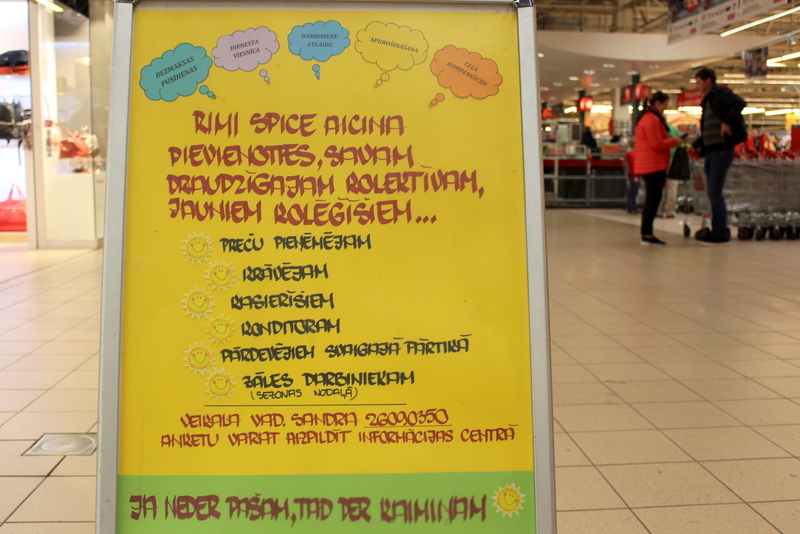 BEZMAKSAS
PUSDIENAS
DIENESTA
VIESNICA
DARBINIEKU
ATLAIDE
APDROŠINĀŠANA
CEĻA
KOMPENSĀCIJA
RIMI SPICE AICINA
PIEVIENOTIES, SAVAM
DRAUDZĪGAJAM KOLEKTĪVAM,
JAUNIEM KOLĒĢĪŠIEM...
PREČU PIEŅĒMĒJAM
KRĀVĒJAM
KASIERĪŠIEM
KONDITORAM
PĀRDEVĒJIEM SVAIGAJĀ PĀRTIKĀ
ZĀLES DARBINIEKAM
(SEZONAS NODAĻĀ)
VEIKALA VAD. SANDRA 26090350
ANKETU VARAT AIZPILDĪT INFORMĀCIJAS CENTRĀ
JA NEDER PAŠAM, TAD DER KAIMIŅAM